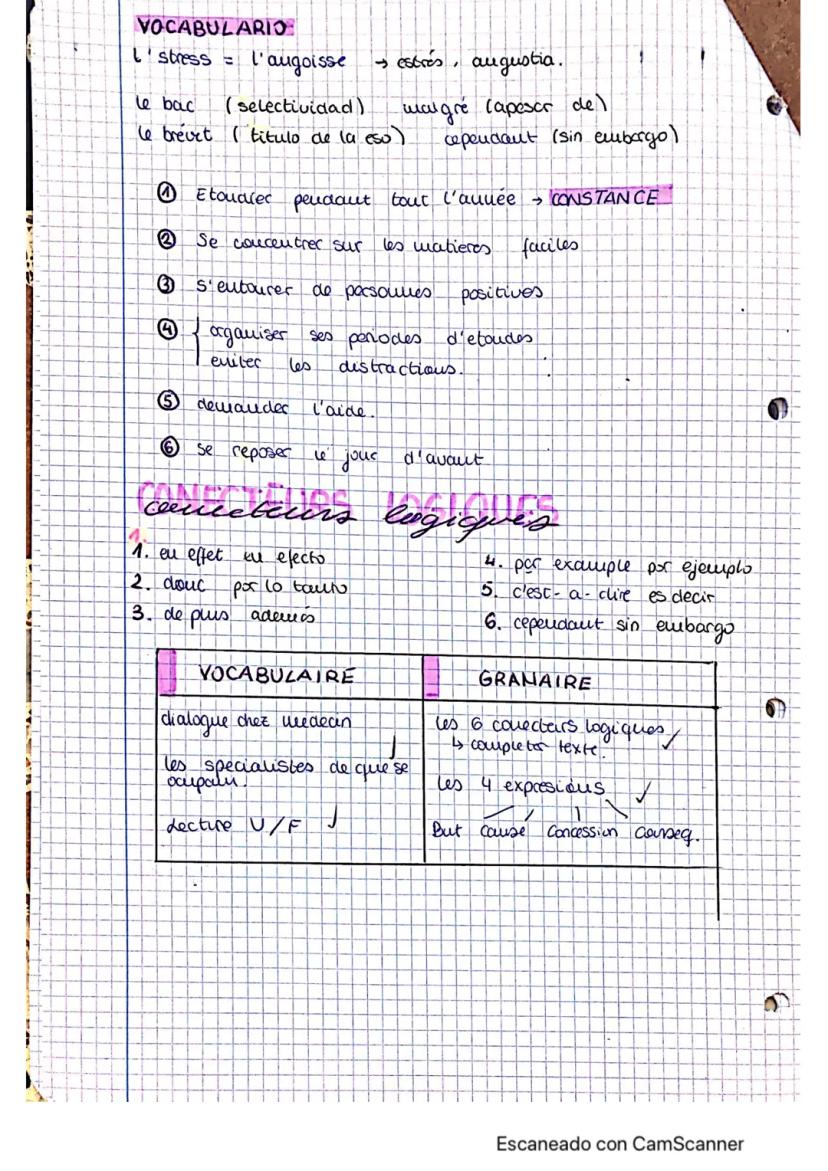 VOCABULARIO:
L'stress = l'augoisse → estrés, angustia.
le bac (selectividad) malgré (apesar de)
le brévet (titulo de la eso) cependant (sin embargo)
① Etoudier pendant tout l'année → CONSTANCE
② Se concentrer sur les matieres faciles
③ s'entourer de personnes positives
④ organiser ses periodes d'etoudes
eviter les distractions.
⑤ demander l'aide.
⑥ se reposer le jour d'avant
CONECTEURS LOGIQUES
conecteurs logiques
1. en effet en efecto
2. donc por lo tanto
3. de plus además
4. par example por ejemplo
5. c'est-a-dire es decir
6. cependant sin embargo
VOCABULAIRE
dialogue chez medecin
les specialistes de que se
ocupan.
Lecture V/F
GRAMAIRE
Les 6 conecteurs logiques
↳ completar texte.
Les 4 expresions
But Cause Concession Conseq.
Escaneado con CamScanner